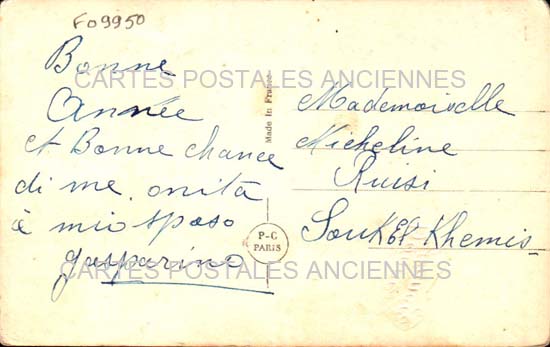 F09950
Bonne
Année
et Bonne chance
di me, onità
à mio sposo
gasparino
Made in France
P-C
PARIS
Mademoiselle
Micheline
Ruisi
Souk El Khemis
CARTES POSTALES ANCIENNES
CARTES POSTALES ANCIENNES